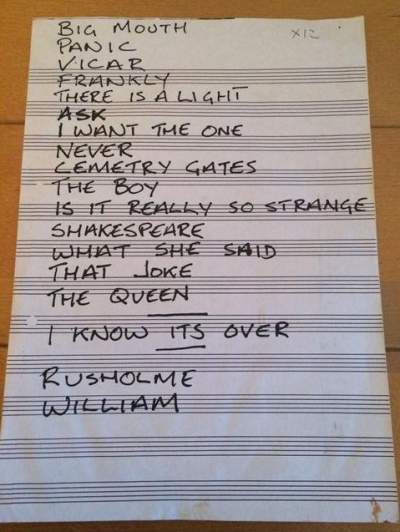 BIG MOUTH
X12
PANIC
VICAR
FRANKLY
THERE IS A LIGHT
ASK
I WANT THE ONE
NEVER
CEMETRY GATES
THE BOY
IS IT REALLY SO STRANGE
SHAKESPEARE
WHAT SHE SAID
THAT JOKE
THE QUEEN
I KNOW ITS OVER
RUSHOLME
WILLIAM